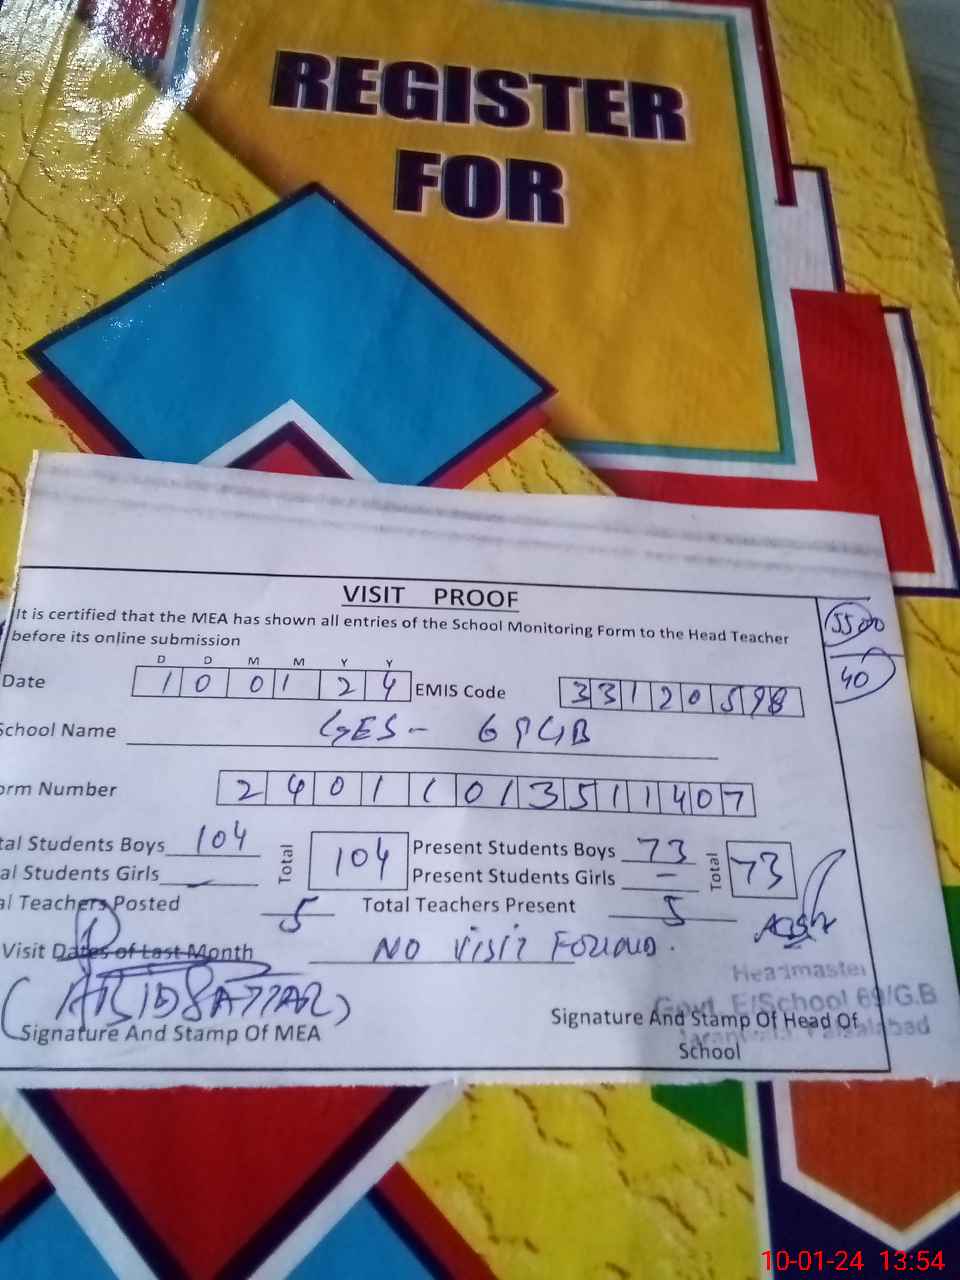 REGISTER
FOR
VISIT PROOF
It is certified that the MEA has shown all entries of the School Monitoring Form to the Head Teacher
before its online submission
5500
40
D D M M Y Y
Date 1 0 0 1 2 4 EMIS Code 3 3 1 2 0 5 9 8
School Name GES - 69GB
orm Number 2 4 0 1 1 0 1 3 5 1 1 4 0 7
tal Students Boys 104 Total 104 Present Students Boys 73 Total 73
al Students Girls - Present Students Girls -
al Teachers Posted 5 Total Teachers Present 5
Visit Dates of Last Month No Visit Found.
(ABID SATTAR)
Signature And Stamp Of MEA
Headmaster
Govt. E/School 69/G.B
Jaranwala, Faisalabad
Signature And Stamp Of Head Of
School
10-01-24 13:54